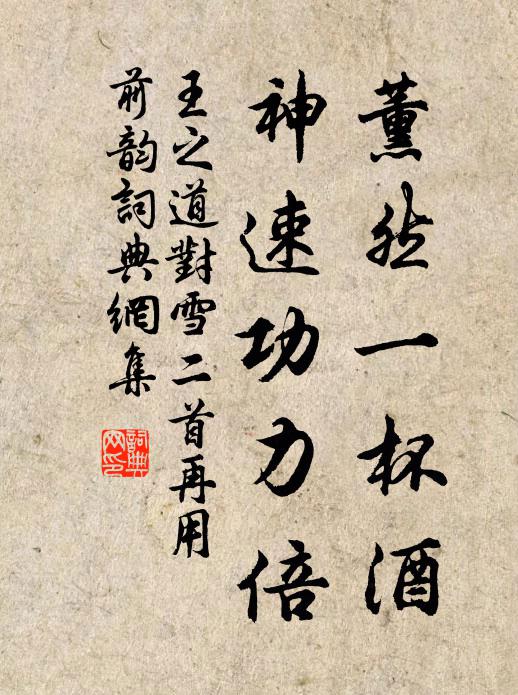 薰然一杯酒
神速功力倍
王之道對雪二首再用
前韵詞典網集
詞典網印